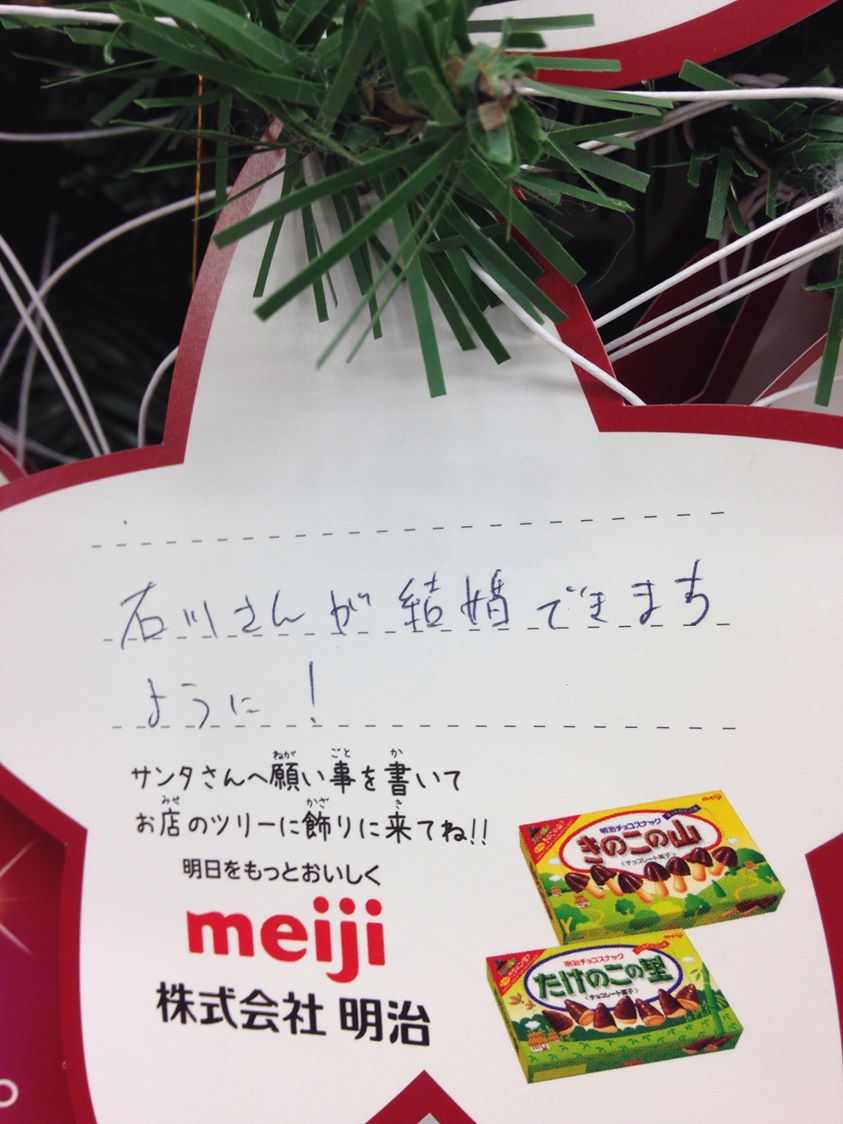 石川さんが結婚できます
ように!
ねが ごと か
サンタさんへ願い事を書いて
みせ かざ き
お店のツリーに飾りに来てね!!
明日をもっとおいしく
meiji
株式会社 明治
meiji
明治チョコスナック
きのこの山
〈チョコレート菓子〉
meiji
明治チョコスナック
たけのこの里
〈チョコレート菓子〉